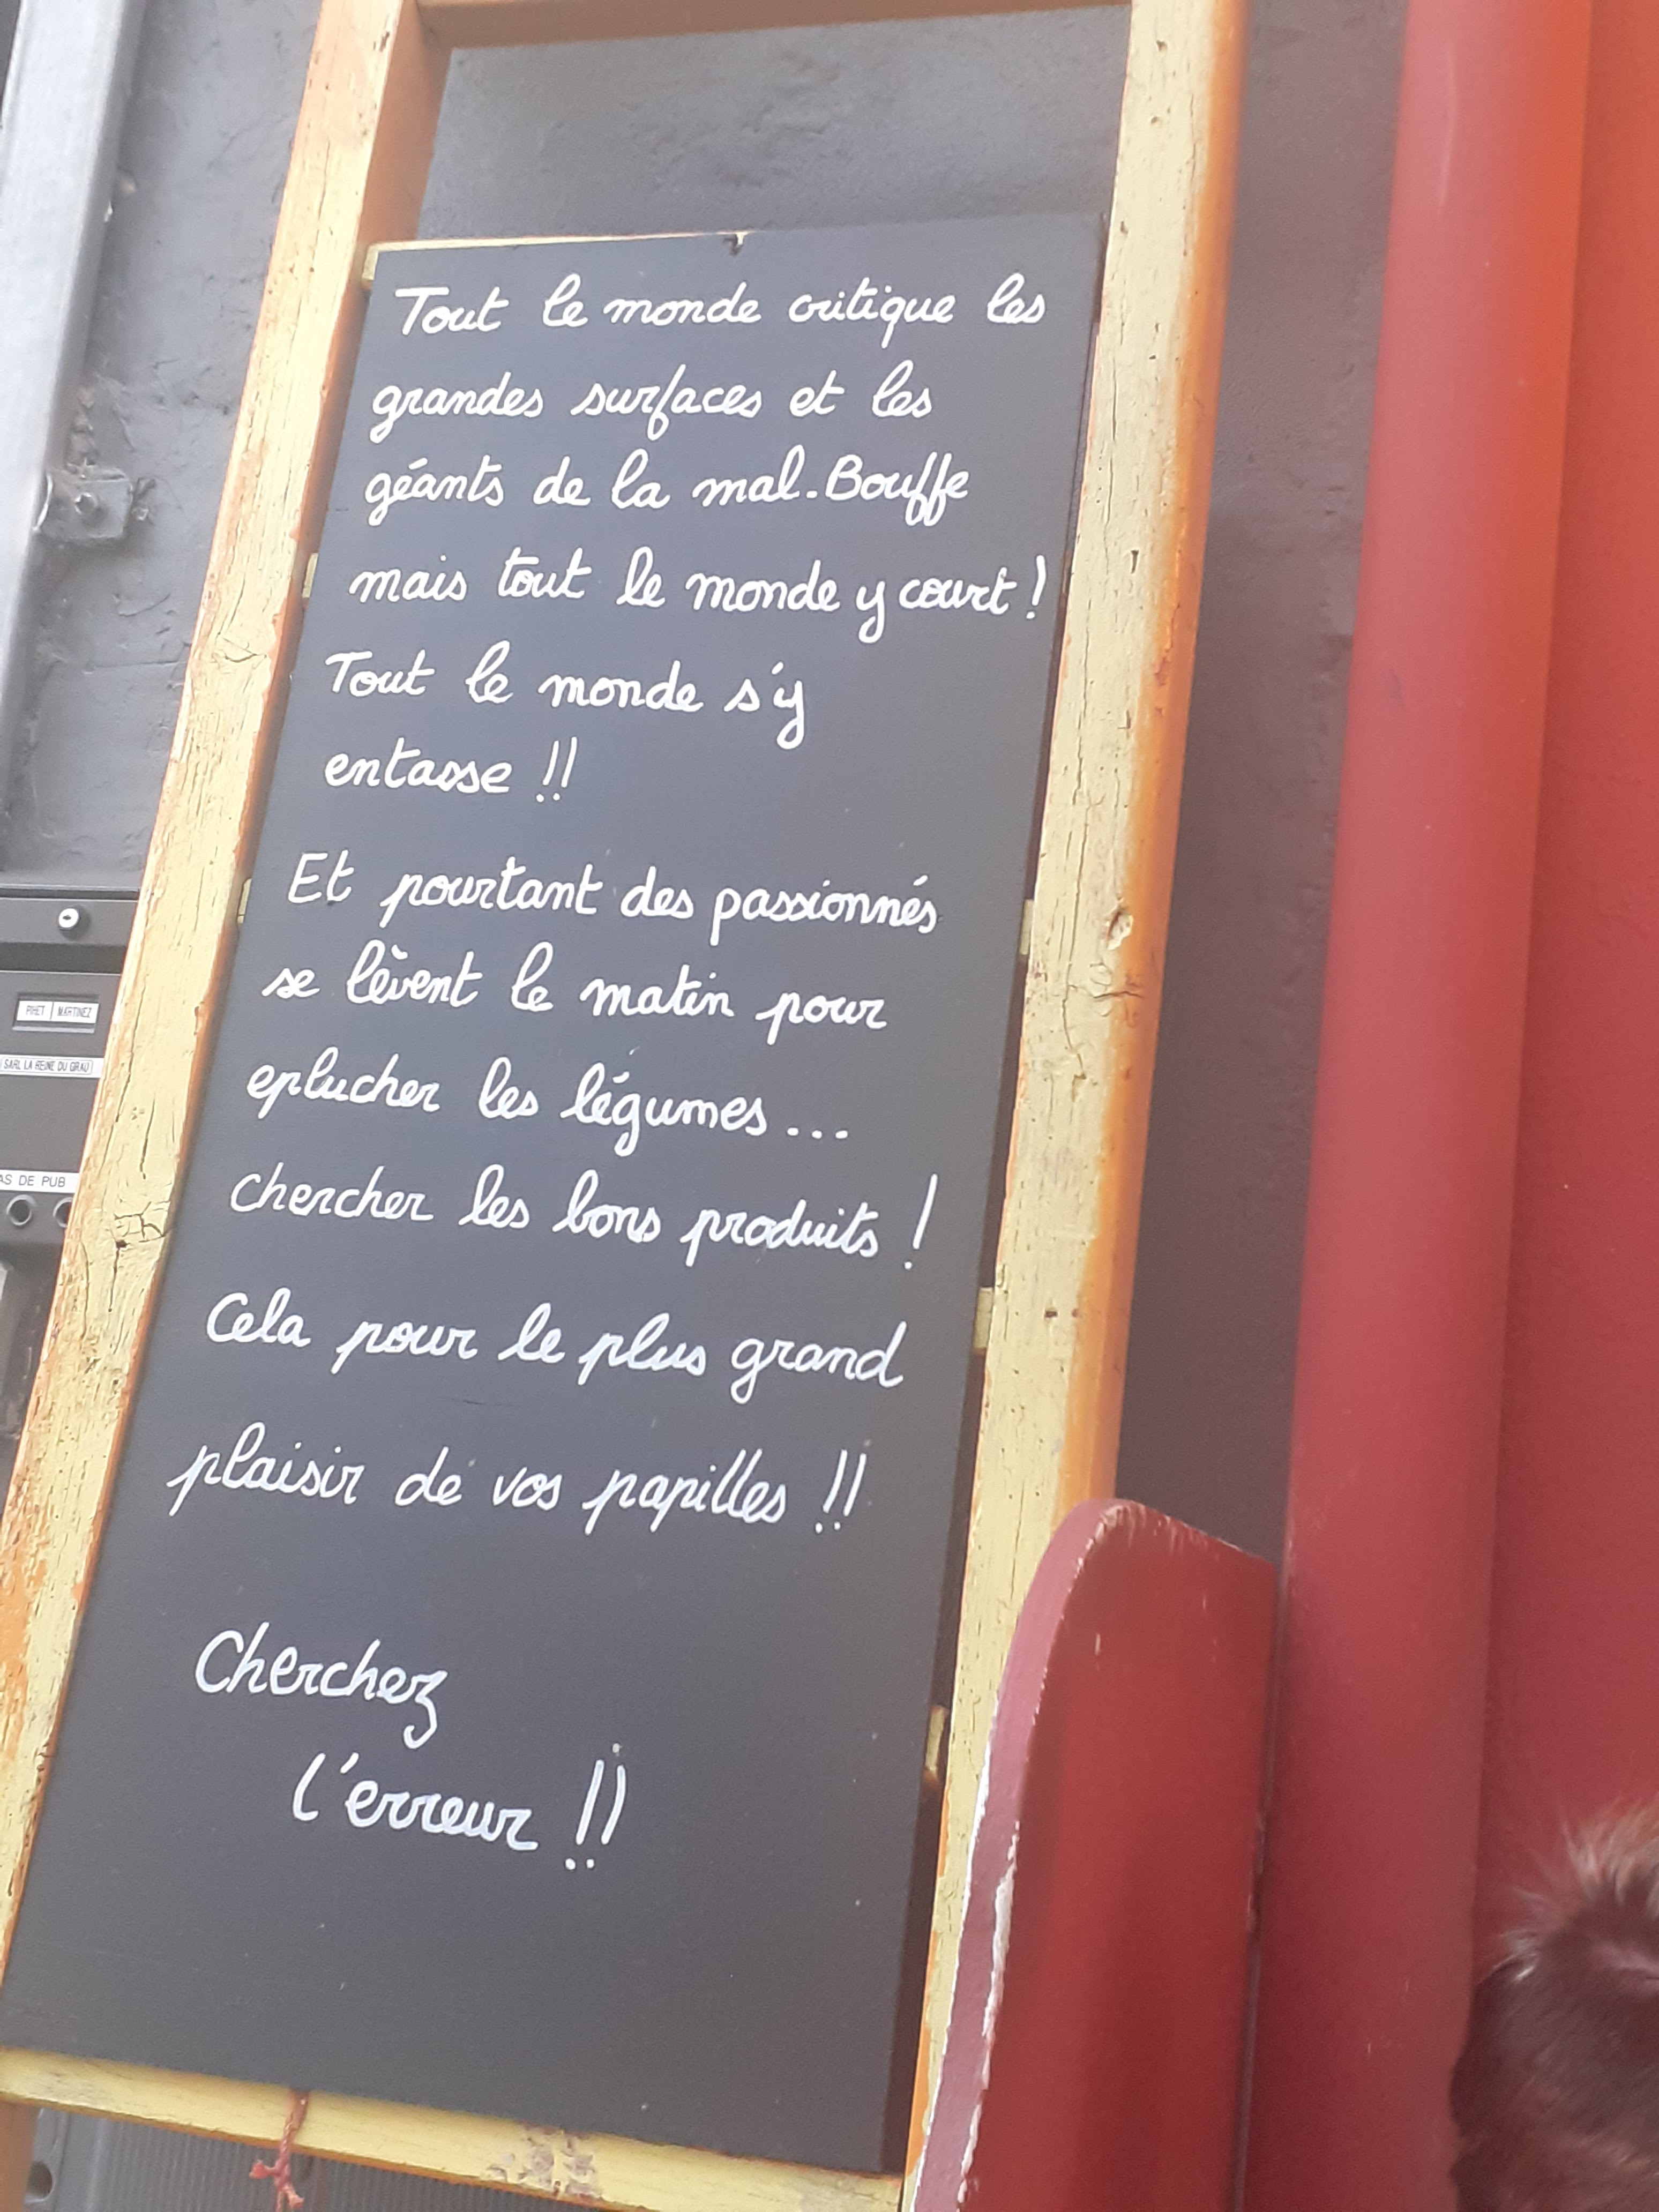 Tout le monde critique les
grandes surfaces et les
géants de la mal-Bouffe
mais tout le monde y court !
Tout le monde s'y
entasse !!
Et pourtant des passionnés
se lèvent le matin pour
eplucher les légumes...
chercher les bons produits !
Cela pour le plus grand
plaisir de vos papilles !!
Cherchez
l'erreur !!
PIHET MARTINEZ
SARL LA REINE DU GRAU
AS DE PUB